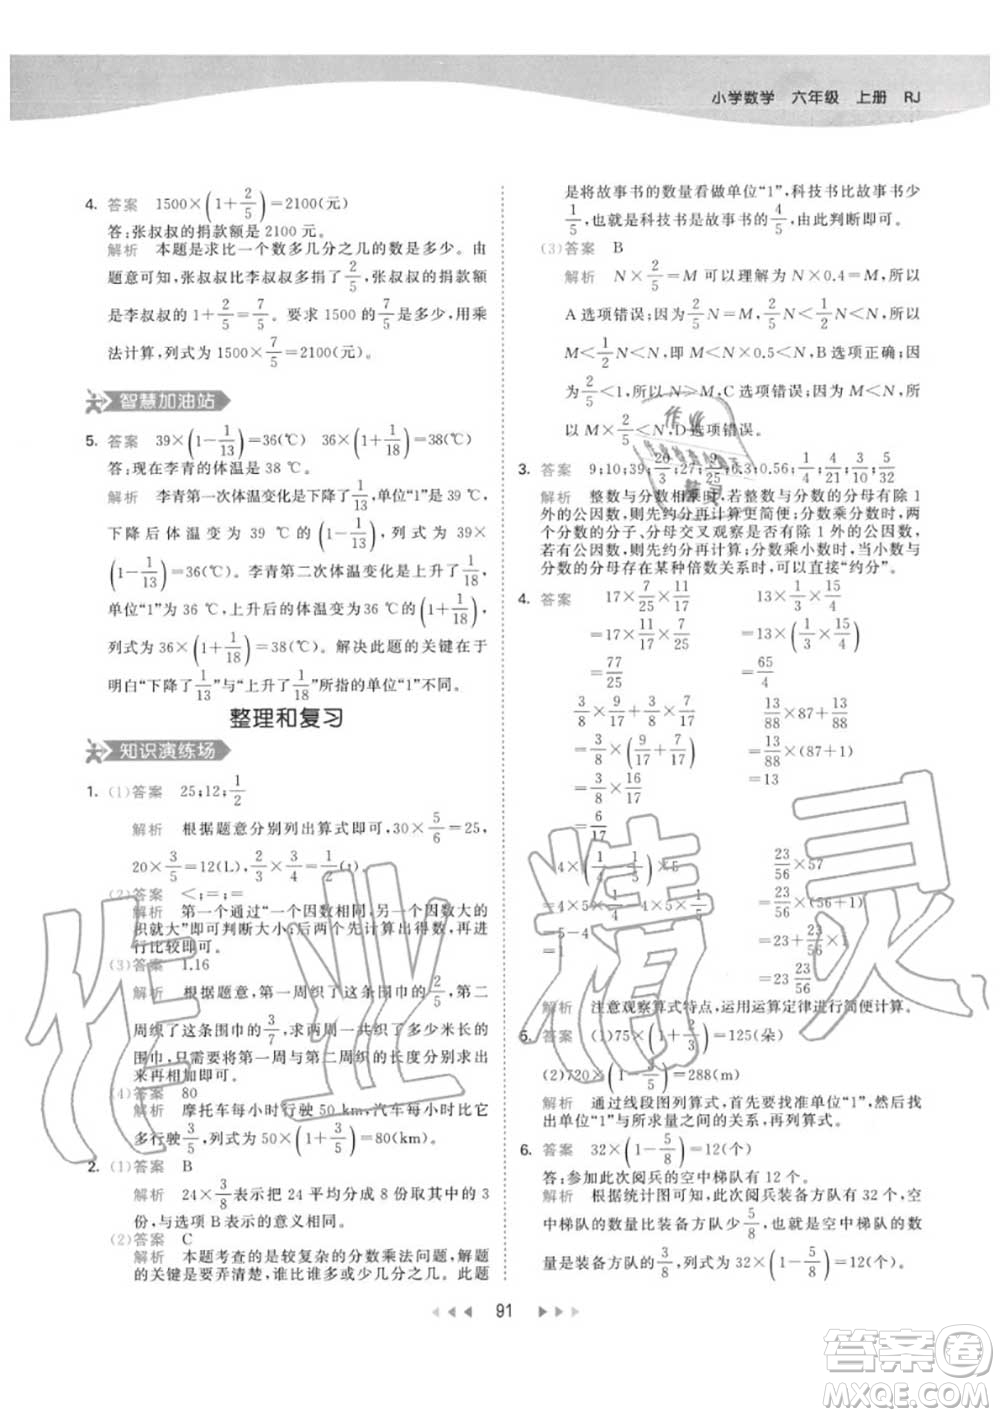 小学数学 六年级 上册 RJ
4. 答案 1500×(1+2/5)=2100(元)
答:张叔叔的捐款额是 2100 元。
解析 本题是求比一个数多几分之几的数是多少。由
题意可知,张叔叔比李叔叔多捐了2/5,张叔叔的捐款额
是李叔叔的 1+2/5=7/5。要求 1500 的7/5是多少,用乘
法计算,列式为 1500×7/5=2100(元)。
智慧加油站
5. 答案 39×(1-1/13)=36(℃) 36×(1+1/18)=38(℃)
答:现在李青的体温是 38 ℃。
解析 李青第一次体温变化是下降1/13,单位“1”是 39 ℃,
下降后体温变为 39 ℃ 的(1-1/13),列式为 39×
(1-1/13)=36(℃)。李青第二次体温变化是上升1/18,
单位“1”为 36 ℃,上升后的体温变为 36 ℃的(1+1/18),
列式为 36×(1+1/18)=38(℃)。解决此题的关键在于
明白“下降了1/13”与“上升了1/18”所指的单位“1”不同。
整理和复习
知识演练场
1. (1)答案 25;12;1/2
解析 根据题意分别列出算式即可,30×5/6=25,
20×3/5=12(L),2/3×3/4=1/2(t)
(2)答案 <;=;=
解析 第一个根据“一个因数相同,另一个因数大的
积就大”即可判断大小;后两个先计算出得数,再进
行比较即可。
(3)答案 1.16
解析 根据题意,第一周织了这条围巾的2/5,第二
周织了这条围巾的3/7,求两周一共织了多少米长的
围巾,可先将第一周与第二周织的长度分别求出来
再相加即可。
(4)答案 80
解析 摩托车每小时行驶 50 km,汽车每小时比它
多行驶3/5,列式为 50×(1+3/5)=80(km)。
2. (1)答案 B
解析 24×3/8表示把 24 平均分成 8 份取其中的 3
份,选项 B 表示的意义与此相同。
(2)答案 C
解析 本题考查的是较复杂的分数乘法问题,解题
的关键是要弄清楚,谁比谁多或少几分之几。本题
是将故事书的数量看做单位“1”,科技书比故事书少
1/5,也就是科技书是故事书的4/5,由此判断即可。
(3)答案 B
解析 N×2/5=M 可以理解为 N×0.4=M,所以
A 选项错误;同时,因为2/5N=M,2/5<1/2,所以
M<1/2N,即 M<N×0.5<N,B 选项正确。因
为2/5<1,所以 N>M,C 选项错误;因为 M<N,所
以 M×2/5<N,D 选项错误。
3. 答案 9;10;39;20/3;27;7/25;6.3;0.56;1/4;3/4;5/32
解析 整数与分数相乘时,若整数与分数的分母有除 1
外的公因数,则先约分再计算更简便;分数乘分数时,两
个分数的分子、分母交叉观察是否有除 1 外的公因数,
若有公因数,则先约分再计算;分数乘小数时,当小数与
分数的分母存在某种倍数关系时,可以直接“约分”。
4. 答案 17×7/25×11/17 13×1/3×15/4
=17×11/17×7/25 =13×(1/3×15/4)
=77/25 =65/4
3/8×9/17+3/8×7/17 13/88×87+13/88
=3/8×(9/17+7/17) =13/88×(87+1)
=3/8×16/17 =13
=6/17
4×(1/4-1/5)×5 23/56×57
=4×5×1/4-4×5×1/5 =23/56×(56+1)
=5-4 =23+23/56×1
=1 =23 23/56
解析 注意观察算式特点,运用运算定律进行简便计算。
5. 答案 (1)75×(1+2/3)=125(朵)
(2)720×(1-3/5)=288(m)
解析 通过线段图列算式,首先要找准单位“1”,然后找
出与所求量之间的关系,再列算式。
6. 答案 32×(1-5/8)=12(个)
答:参加此次阅兵的空中梯队有 12 个。
解析 根据统计图可知,此次阅兵装备方队有 32 个,空
中梯队的数量比装备方队少5/8,也就是空中梯队的数
量是装备方队的3/8,列式为 32×(1-5/8)=12(个)。
91
作业精灵
答案圈
MXQE.COM